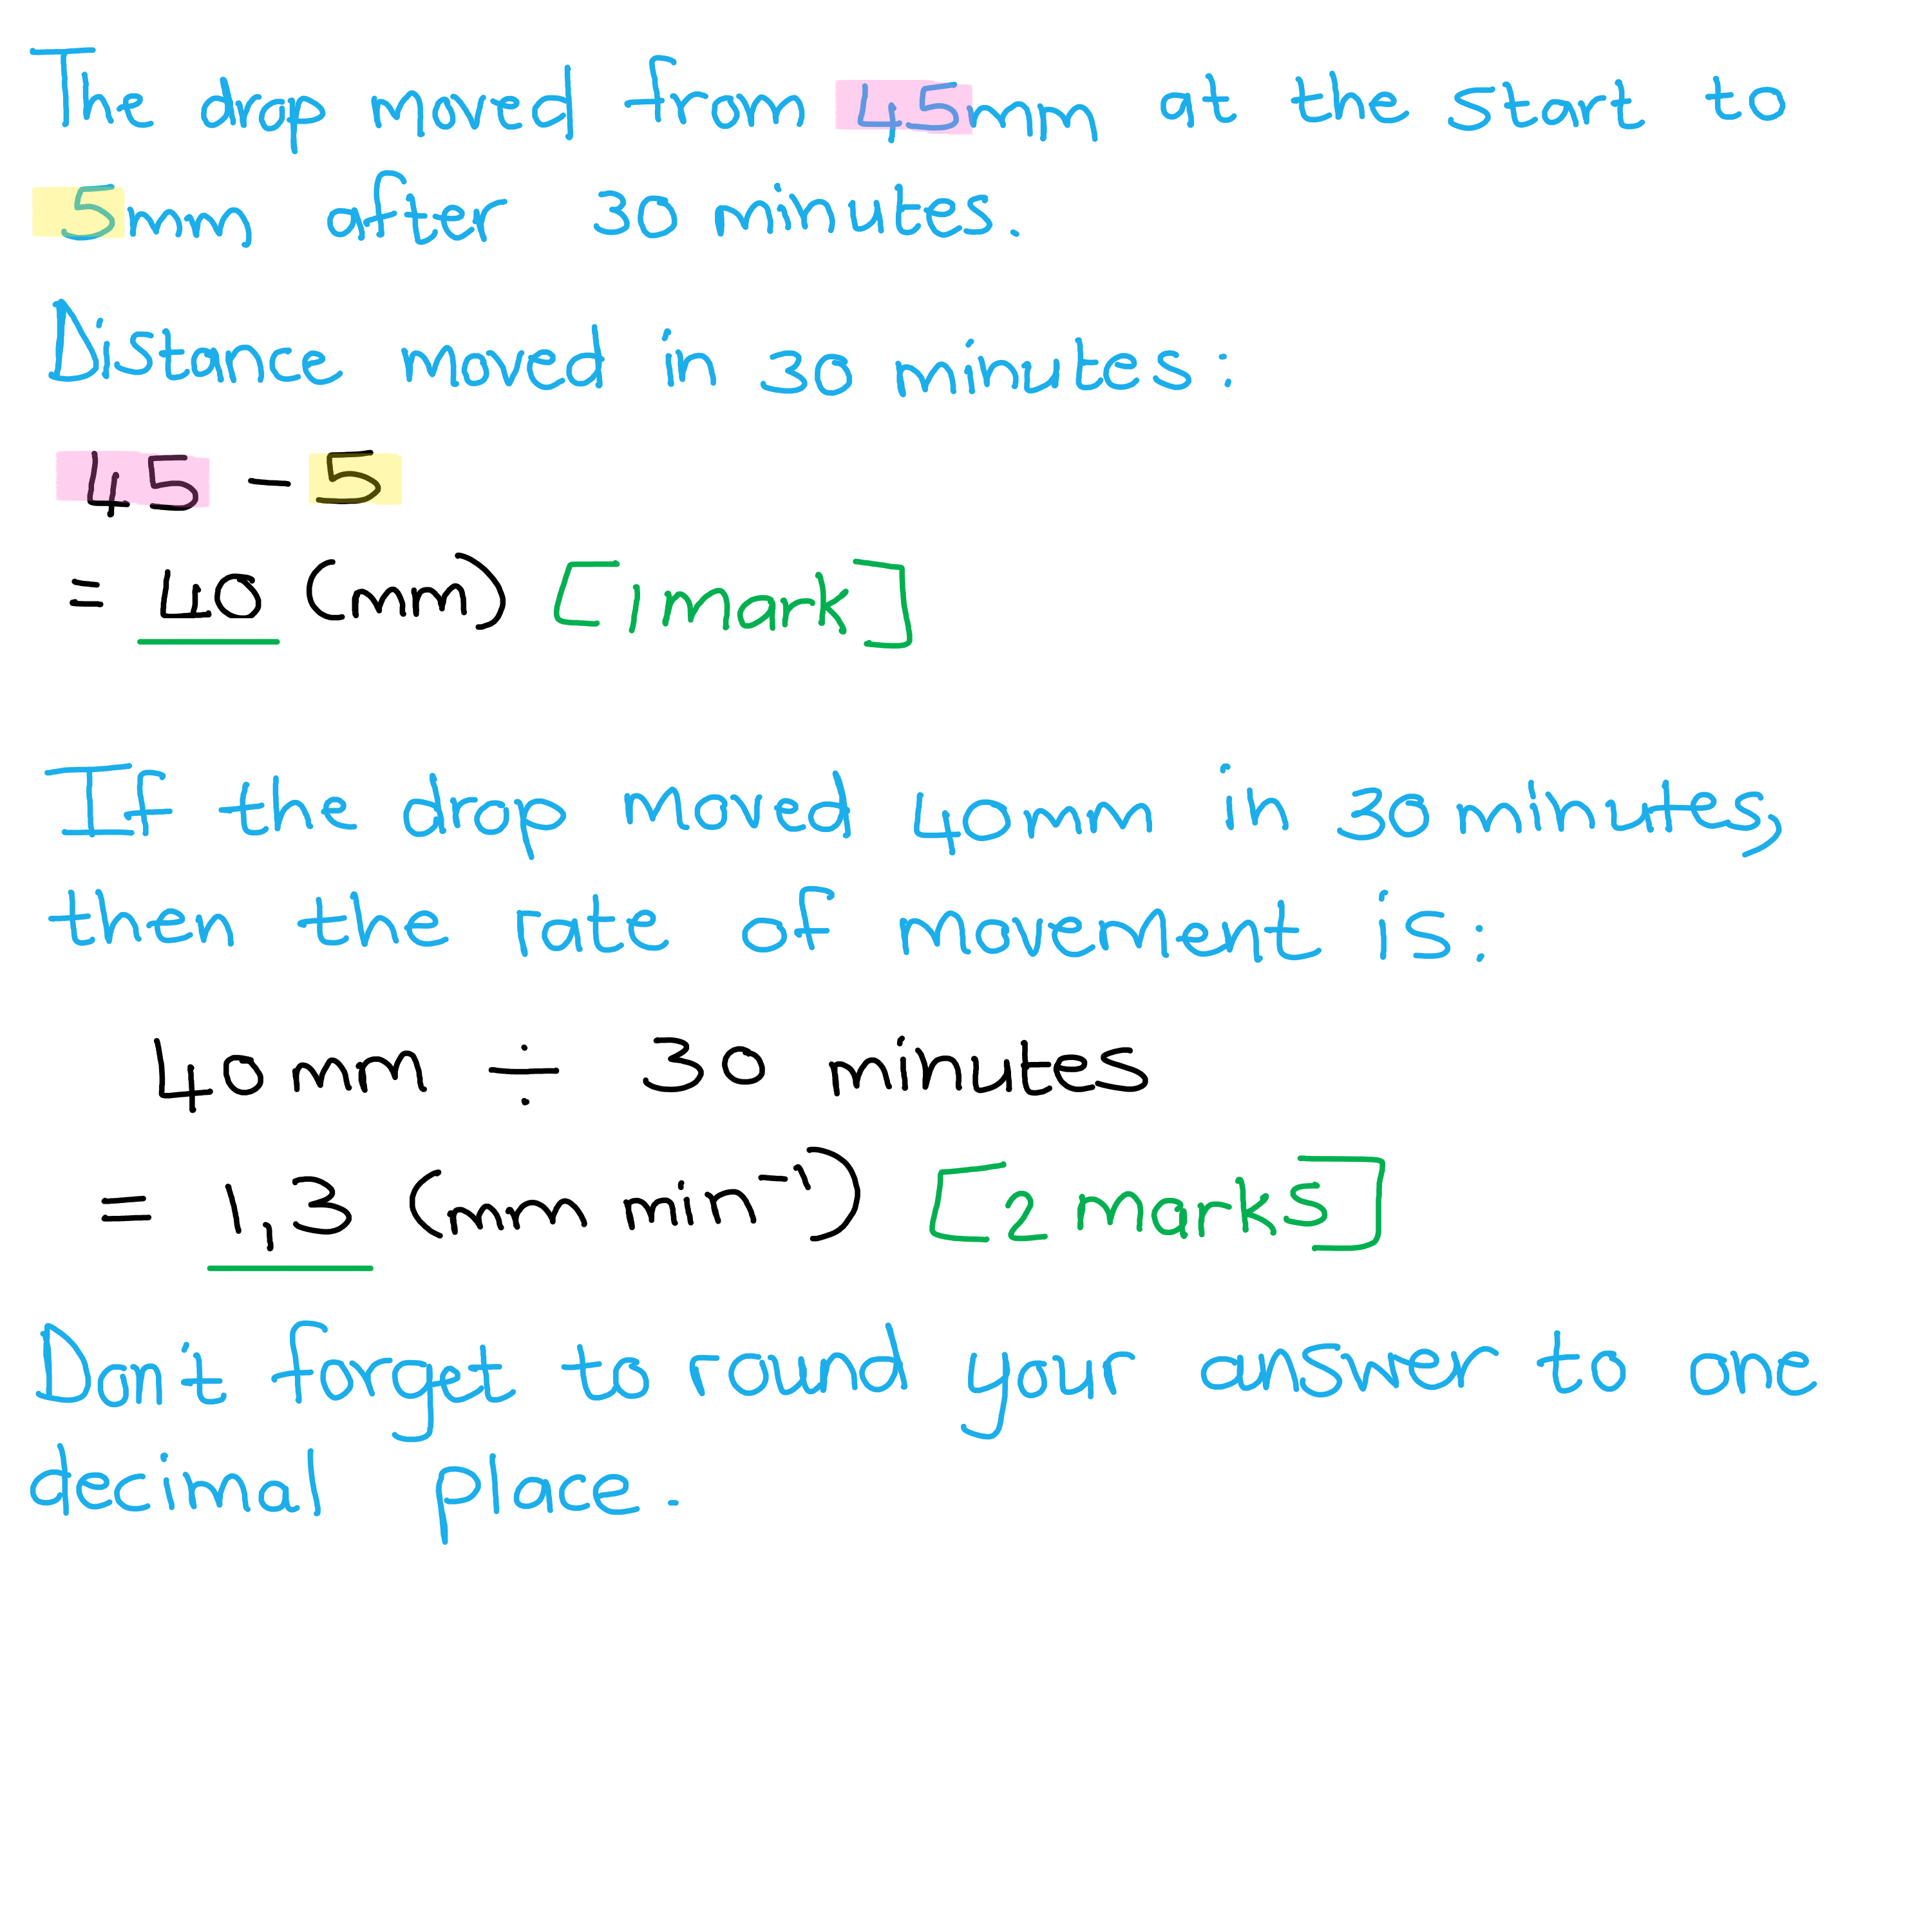 The drop moved from 45mm at the start to
5mm after 30 minutes.
Distance moved in 30 minutes:
45 - 5
= 40 (mm) [1 mark]
If the drop moved 40mm in 30 minutes,
then the rate of movement is:
40 mm ÷ 30 minutes
= 1.3 (mm min⁻¹) [2 marks]
Don't forget to round your answer to one
decimal place.